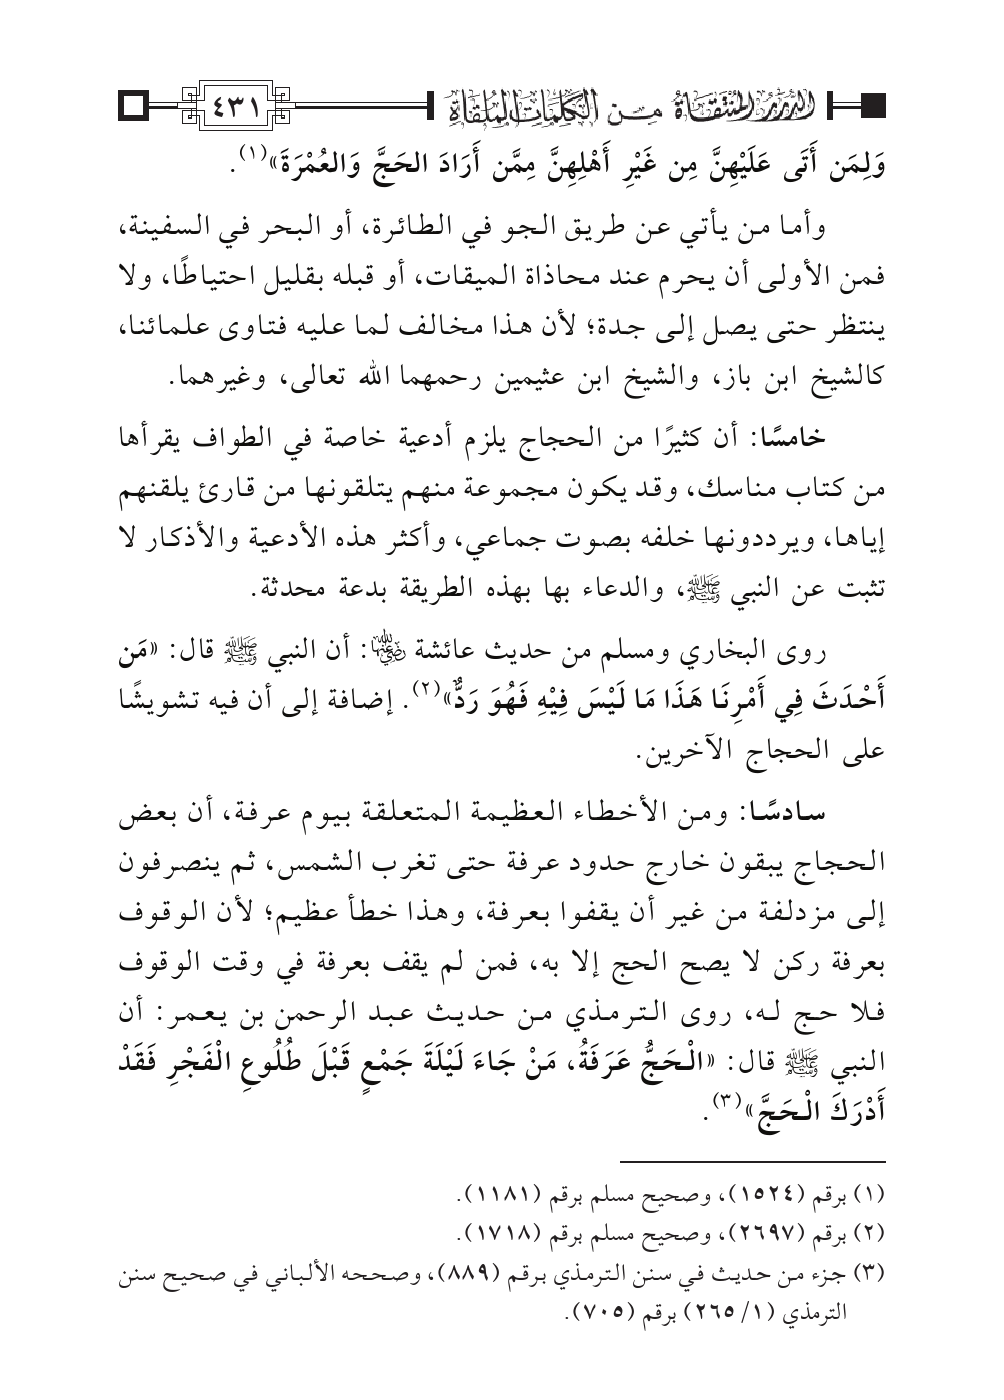 الدرر المنتقاة من الكلمات الملقاة ٤٣١
وَلِمَن أَتَى عَلَيْهِنَّ مِن غَيْرِ أَهْلِهِنَّ مِمَّن أَرَادَ الحَجَّ وَالعُمْرَةَ»(١).
وأما من يأتي عن طريق الجو في الطائرة، أو البحر في السفينة،
فمن الأولى أن يحرم عند محاذاة الميقات، أو قبله بقليل احتياطًا، ولا
ينتظر حتى يصل إلى جدة؛ لأن هذا مخالف لما عليه فتاوى علمائنا،
كالشيخ ابن باز، والشيخ ابن عثيمين رحمهما الله تعالى، وغيرهما.
خامسًا: أن كثيرًا من الحجاج يلزم أدعية خاصة في الطواف يقرأها
من كتاب مناسك، وقد يكون مجموعة منهم يتلقونها من قارئ يلقنهم
إياها، ويرددونها خلفه بصوت جماعي، وأكثر هذه الأدعية والأذكار لا
تثبت عن النبي ﷺ، والدعاء بها بهذه الطريقة بدعة محدثة.
روى البخاري ومسلم من حديث عائشة رضي الله عنها: أن النبي ﷺ قال: «مَن
أَحْدَثَ فِي أَمْرِنَا هَذَا مَا لَيْسَ فِيْهِ فَهُوَ رَدٌّ»(٢). إضافة إلى أن فيه تشويشًا
على الحجاج الآخرين.
سادسًا: ومن الأخطاء العظيمة المتعلقة بيوم عرفة، أن بعض
الحجاج يبقون خارج حدود عرفة حتى تغرب الشمس، ثم ينصرفون
إلى مزدلفة من غير أن يقفوا بعرفة، وهذا خطأ عظيم؛ لأن الوقوف
بعرفة ركن لا يصح الحج إلا به، فمن لم يقف بعرفة في وقت الوقوف
فلا حج له، روى الترمذي من حديث عبد الرحمن بن يعمر: أن
النبي ﷺ قال: «الْحَجُّ عَرَفَةُ، مَنْ جَاءَ لَيْلَةَ جَمْعٍ قَبْلَ طُلُوعِ الْفَجْرِ فَقَدْ
أَدْرَكَ الْحَجَّ»(٣).
(١) برقم (١٥٢٤)، وصحيح مسلم برقم (١١٨١).
(٢) برقم (٢٦٩٧)، وصحيح مسلم برقم (١٧١٨).
(٣) جزء من حديث في سنن الترمذي برقم (٨٨٩)، وصححه الألباني في صحيح سنن
الترمذي (١/ ٢٦٥) برقم (٧٠٥).